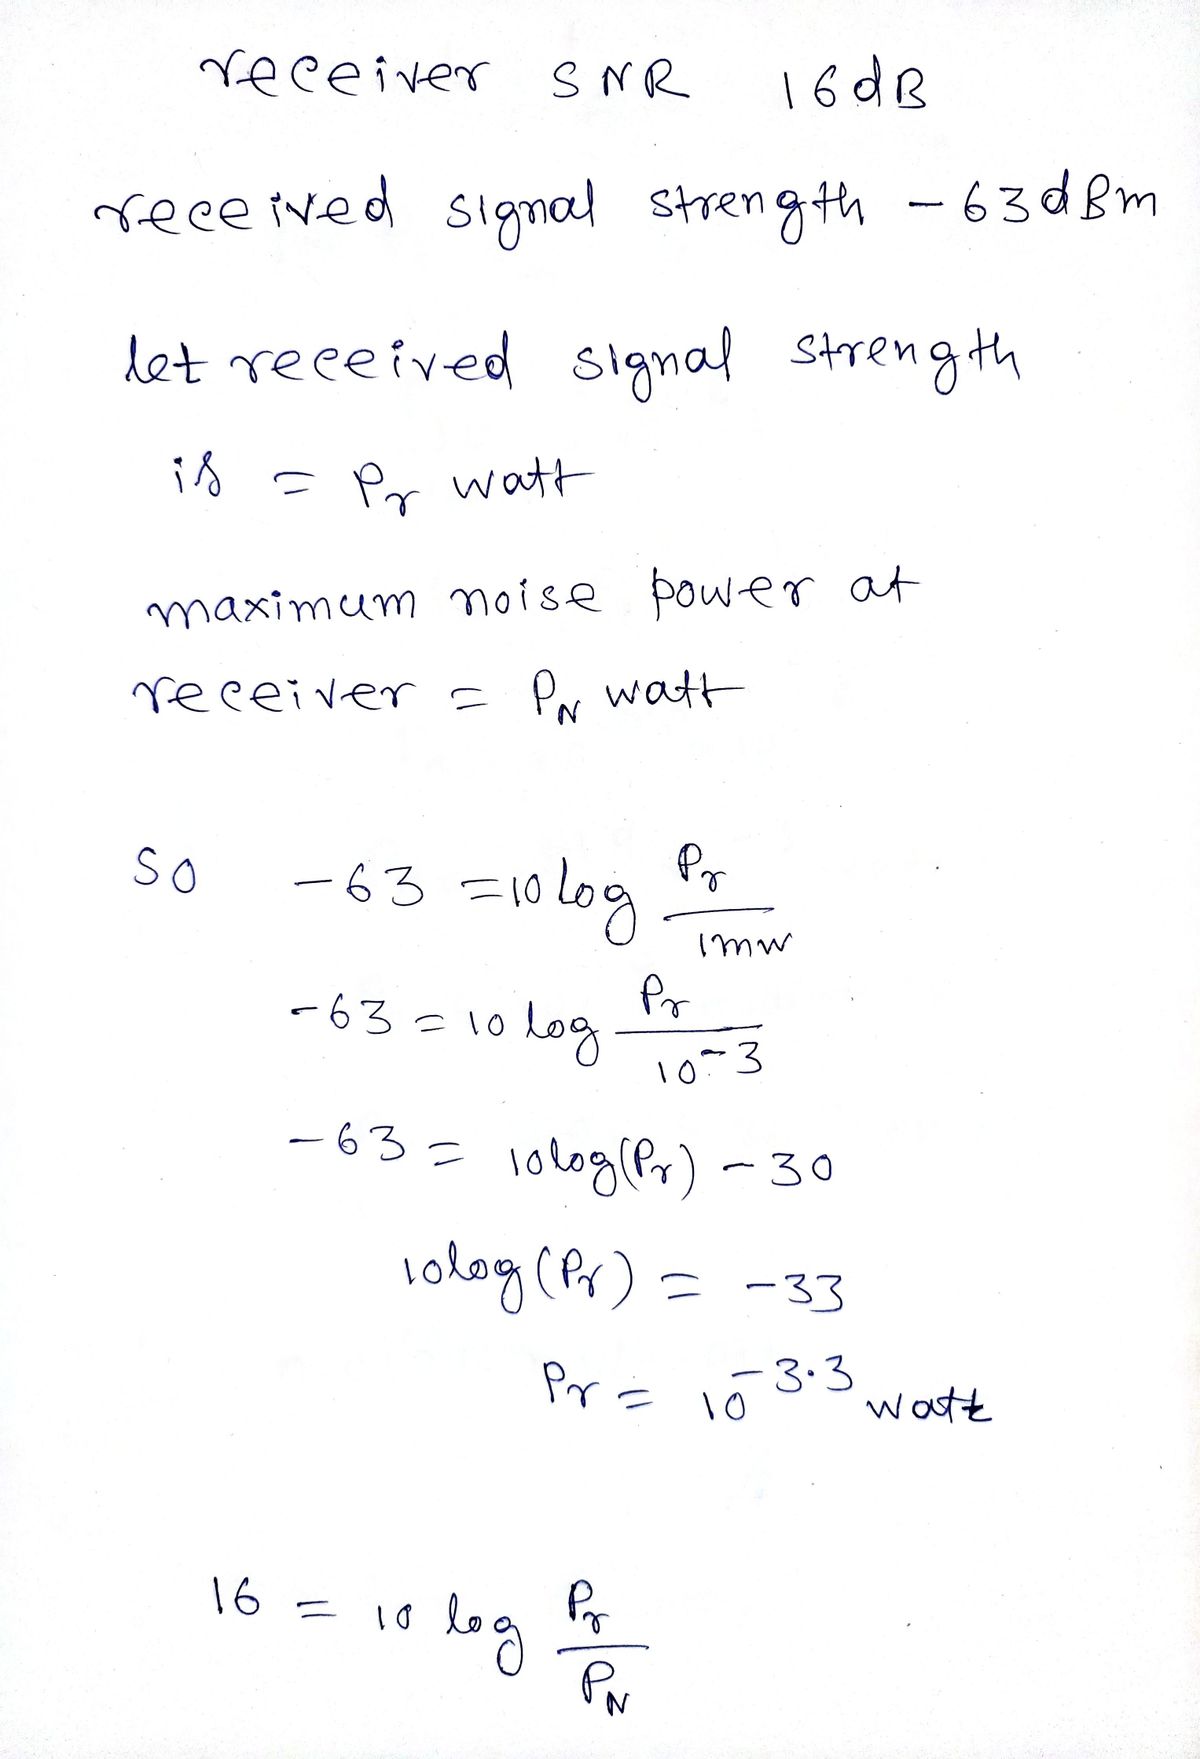 receiver SNR 16dB
received signal strength -63dBm
let received signal strength
is = Pr watt
maximum noise power at
receiver = PN watt
so -63 = 10 log Pr/1mw
-63 = 10 log Pr/10^-3
-63 = 10log(Pr) - 30
10log(Pr) = -33
Pr = 10^-3.3 watt
16 = 10 log Pr/PN